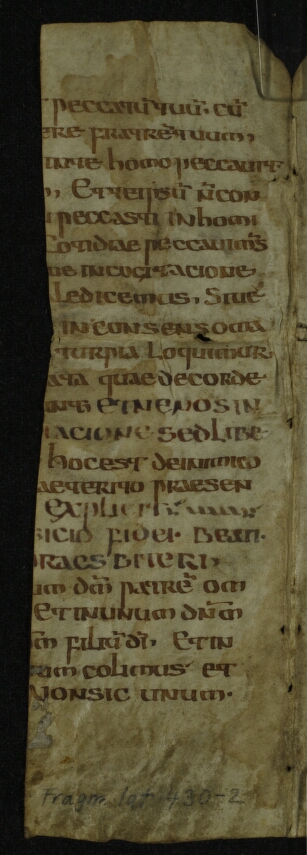 peccatū tuū. cū
ere fratrē tuum,
homo peccavit
, Et te ipsū ñ con
peccasti in homi
Cotidiae peccamus
ne in cogitacione
ledicemus, Sive
in consenso
turpia loquimur
ata quae de corde
ET NE NOS IN
TACIONE SED LIBE
hoc est de inimico
aeterito praesen
Explicit
SICIO FIDEI. BEATI
um dm̄ patrē om
ET IN UNUM DN̄M
filiū dī, ET IN
colimus et
NON SIC UNUM.
Fragm. lat. 430-2